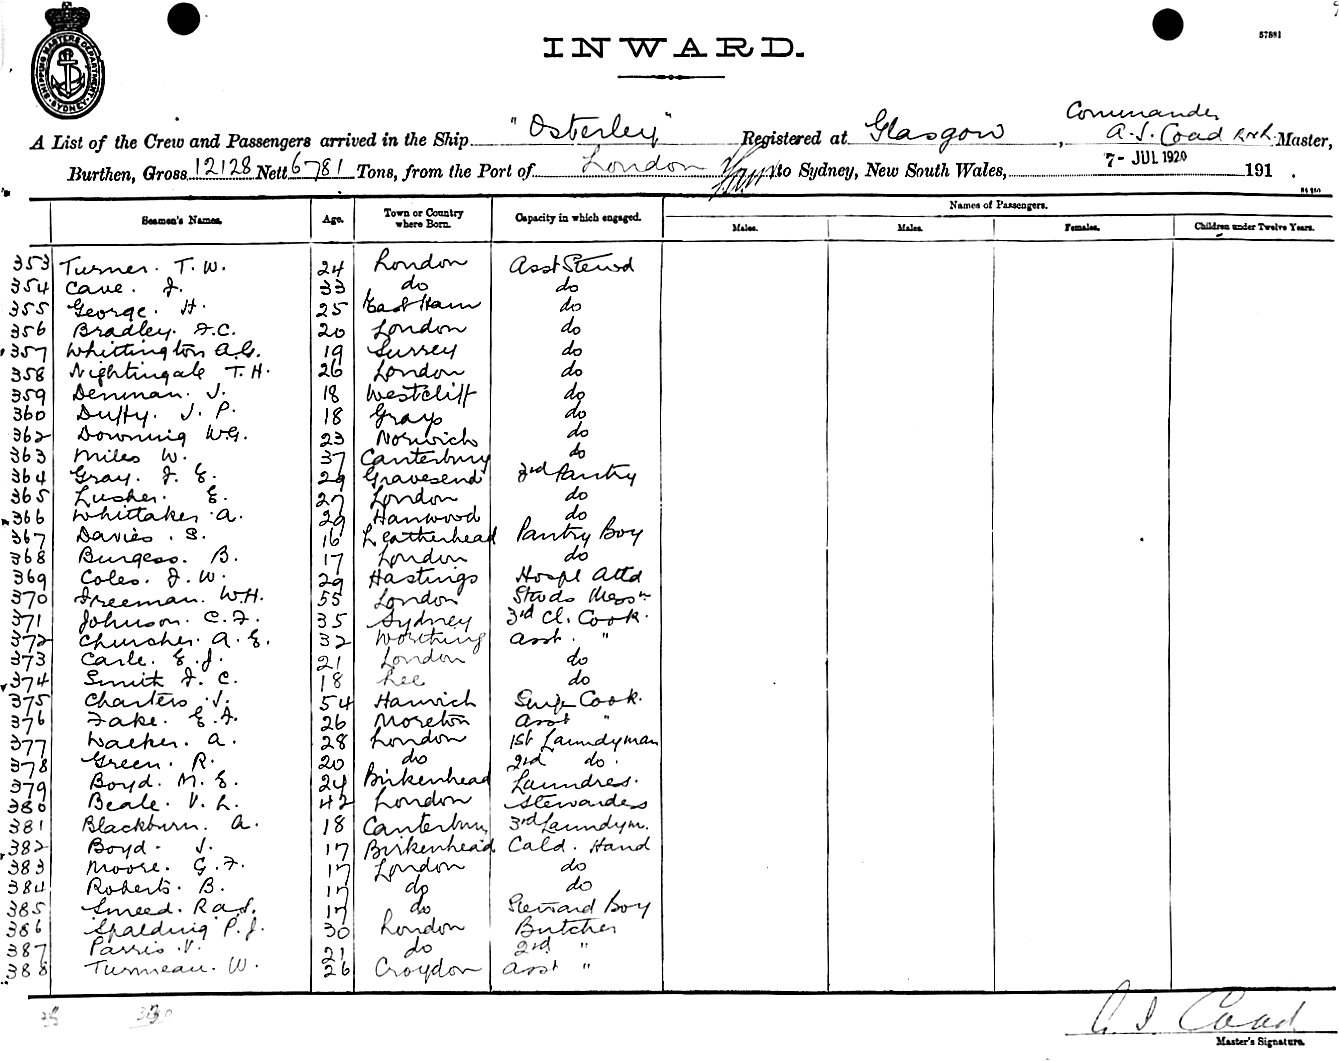 SHIPPING MASTERS DEPARTMENT SYDNEY
57881
INWARD.
Commander
A List of the Crew and Passengers arrived in the Ship "Osterley" Registered at Glasgow, A. J. Coad R.N.R. Master,
Burthen, Gross 12128 Nett 6781 Tons, from the Port of London to Sydney, New South Wales, 7 - JUL 1920 191 .
Seamen's Names. Age. Town or Country where Born. Capacity in which engaged. Names of Passengers.
Males. Males. Females. Children under Twelve Years.
353 Turner. T. W. 24 London Asst Stewd
354 Cave. J. 33 do do
355 George. H. 25 East Ham do
356 Bradley. F. C. 20 London do
357 Whittington A. G. 19 Surrey do
358 Nightingale T. H. 26 London do
359 Denman. J. 18 Westcliff do
360 Duffy. J. P. 18 Grays do
362 Downing W. G. 23 Norwich do
363 Miles W. 37 Canterbury do
364 Gray. F. E. 29 Gravesend 3rd Pantry
365 Lusher. E. 27 London do
366 Whittaker. A. 29 Hanwood do
367 Davies. S. 16 Leatherhead Pantry Boy
368 Burgess. B. 17 London do
369 Coles. F. W. 29 Hastings Hospl Attd
370 Freeman. W. H. 55 London Stwds Messn
371 Johnson. C. F. 35 Sydney 3rd Cl. Cook.
372 Churcher. A. E. 32 Worthing Asst. "
373 Carle. E. J. 21 London do
374 Smith F. C. 18 Lee do
375 Charters. J. 54 Harwich Ship Cook.
376 Fake. E. F. 26 Moreton Asst "
377 Walker. A. 28 London 1st Laundyman
378 Green. R. 20 do 2nd do.
379 Boyd. M. E. 24 Birkenhead Laundres.
380 Beale. V. L. 42 London Stewardes
381 Blackburn. A. 18 Canterbury 3rd Laundym.
382 Boyd. J. 17 Birkenhead Cald. Hand
383 Moore. G. F. 17 London do
384 Roberts. B. 17 do do
385 Smeed. R. A. S. 17 do Steward Boy
386 Spalding P. J. 30 London Butcher
387 Parris. V. 21 do 2nd "
388 Turmeau. W. 26 Croydon Asst "
A. J. Coad
Master's Signature.